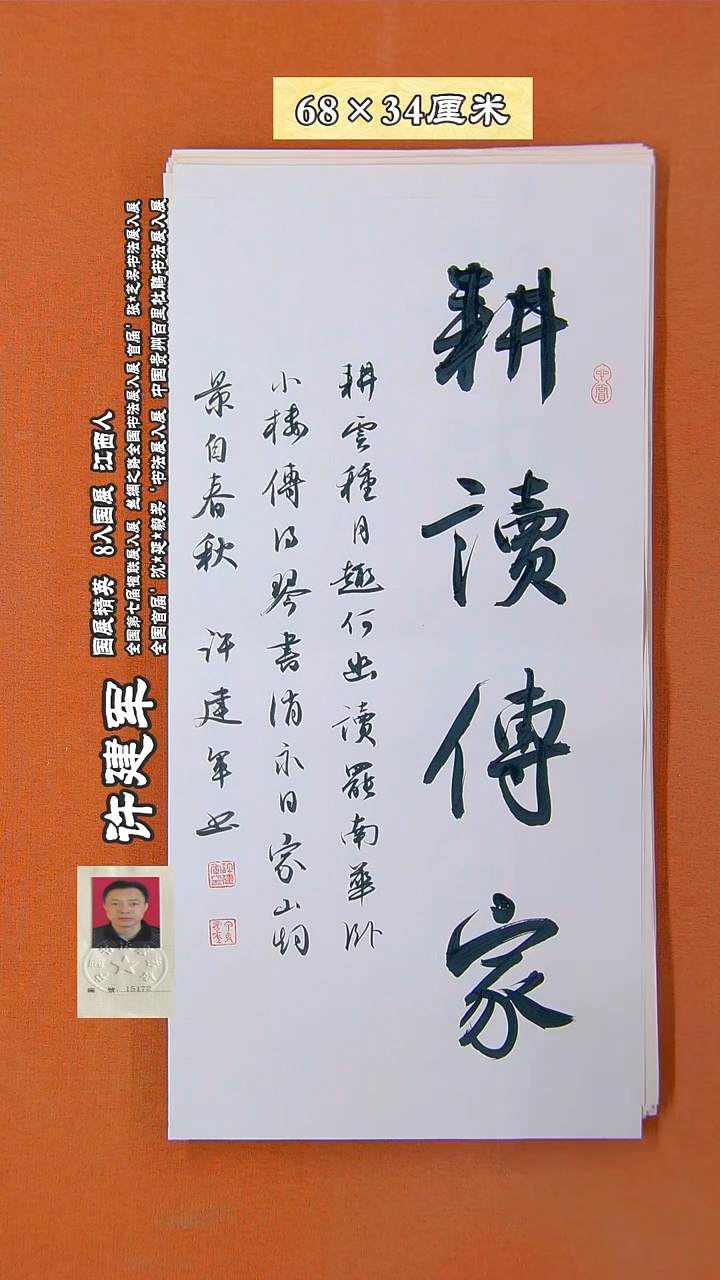 68×34厘米
耕讀傳家
耕雲種月趣何幽讀罷南華卧
小樓傳得琴書消永日家山好
景自春秋 许建军书
国展精英 8入国展 江西人
全国第七届楹联展入展 丝绸之路全国书法展入展 首届'张*芝奖书法展入展
全国首届'沈*延*毅奖'书法展入展 中国贵州百里杜鹃书法展入展
许建军
號：15172